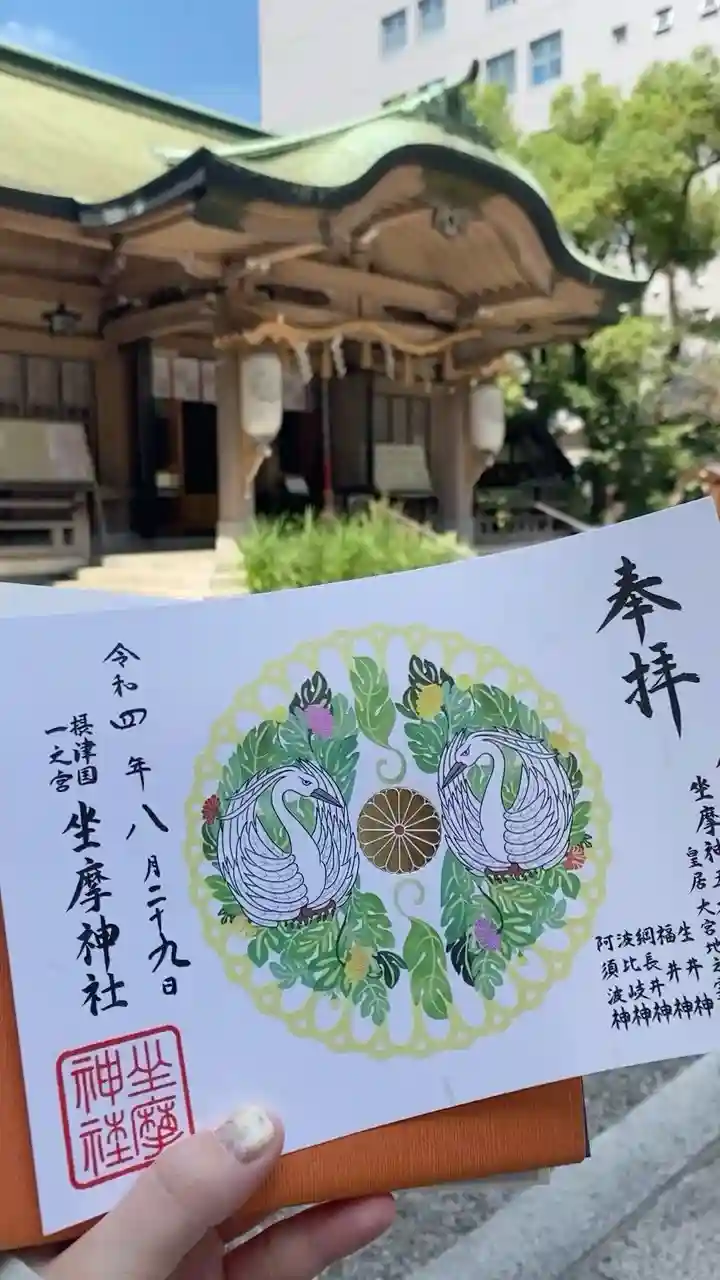 奉拝
坐摩神
皇居大宮地
生井神
福井神
綱長井神
波比岐神
阿須波神
令和四年八月二十九日
摂津国
一之宮
坐摩神社
坐摩
神社